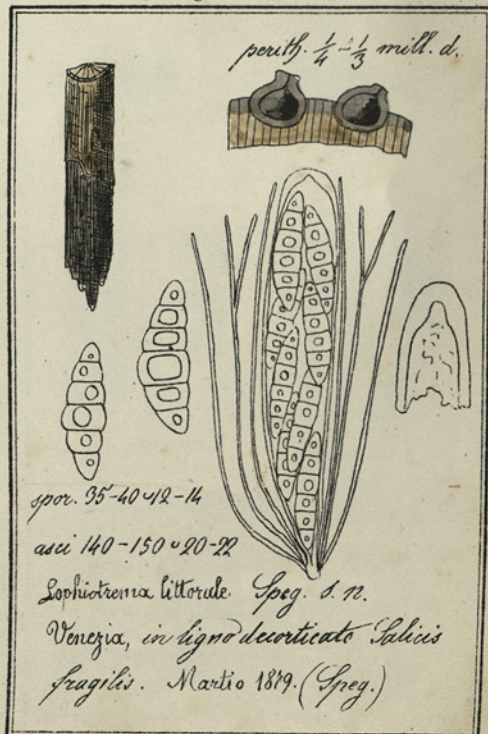 perith. 1/4 - 1/3 mill. d.
spor. 35-40 ᴗ 12-14
asci 140-150 ᴗ 20-22
Lophiotrema littorale Speg. s. n.
Venezia, in ligno decorticato Salicis
fragilis. Martio 1879. (Speg.)